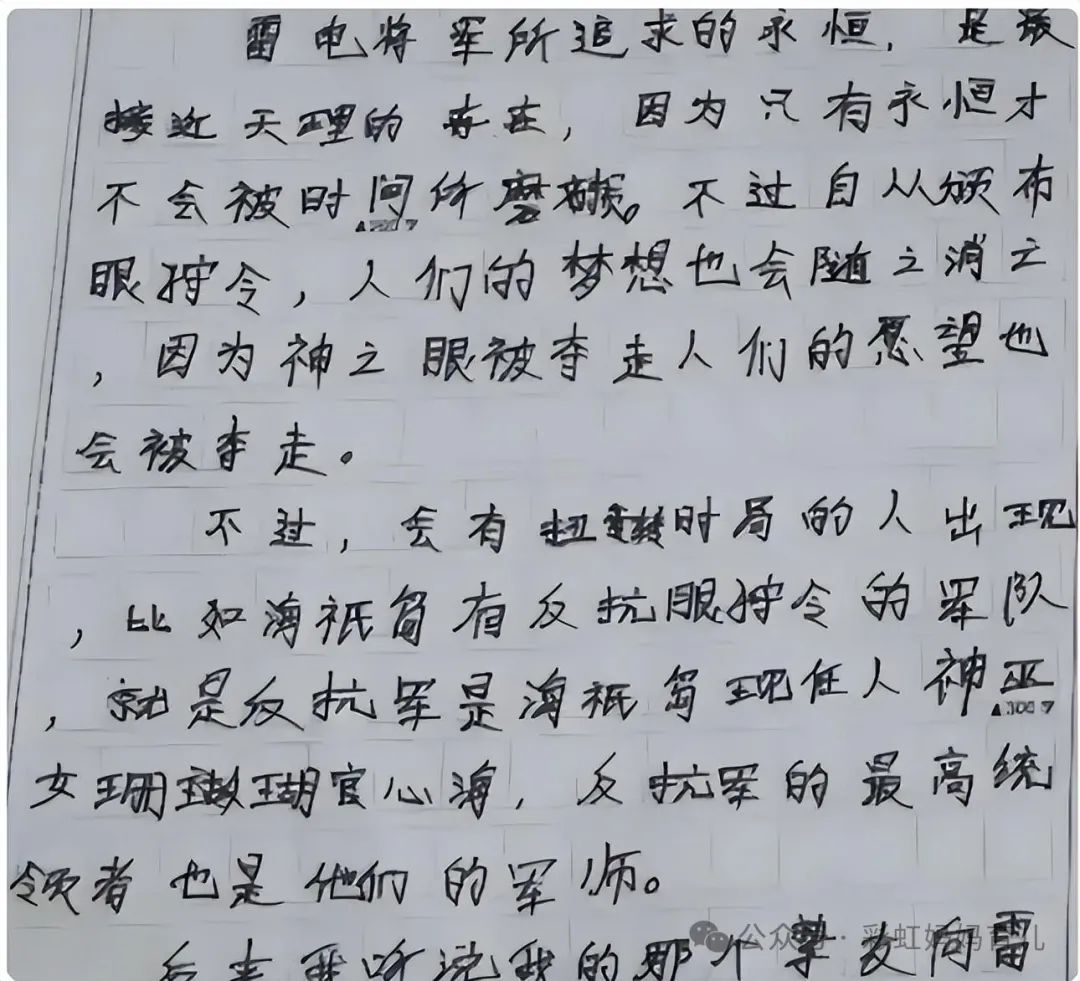 雷电将军所追求的永恒，是最
接近天理的存在，因为只有永恒才
不会被时间所磨损。不过自从颁布
眼狩令，人们的梦想也会随之消亡
，因为神之眼被夺走人们的愿望也
会被夺走。
不过，会有扭转时局的人出现
，比如海祇岛有反抗眼狩令的军队
，就是反抗军是海祇岛现任人神巫
女珊瑚宫心海，反抗军的最高统
领者也是他们的军师。
后来我听说我的那个挚友向雷
公众号·彩虹妈妈育儿